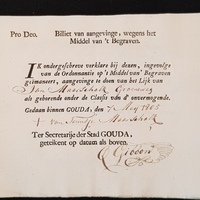 Pro Deo. Billiet van aangevinge, wegens het
Middel van 't Begraven.
IK ondergeschreve verklare bij desen, ingevolge
van de Ordonnantie op 't Middel van Begraven
geëmaneert, aangevinge te doen van het Lijk van
van
als gehorende onder de Classis van d' onvermogende.
Gedaan binnen GOUDA, den 7 May 1805
van
Ter Secretarije der Stad GOUDA,
getekent op datum als boven.